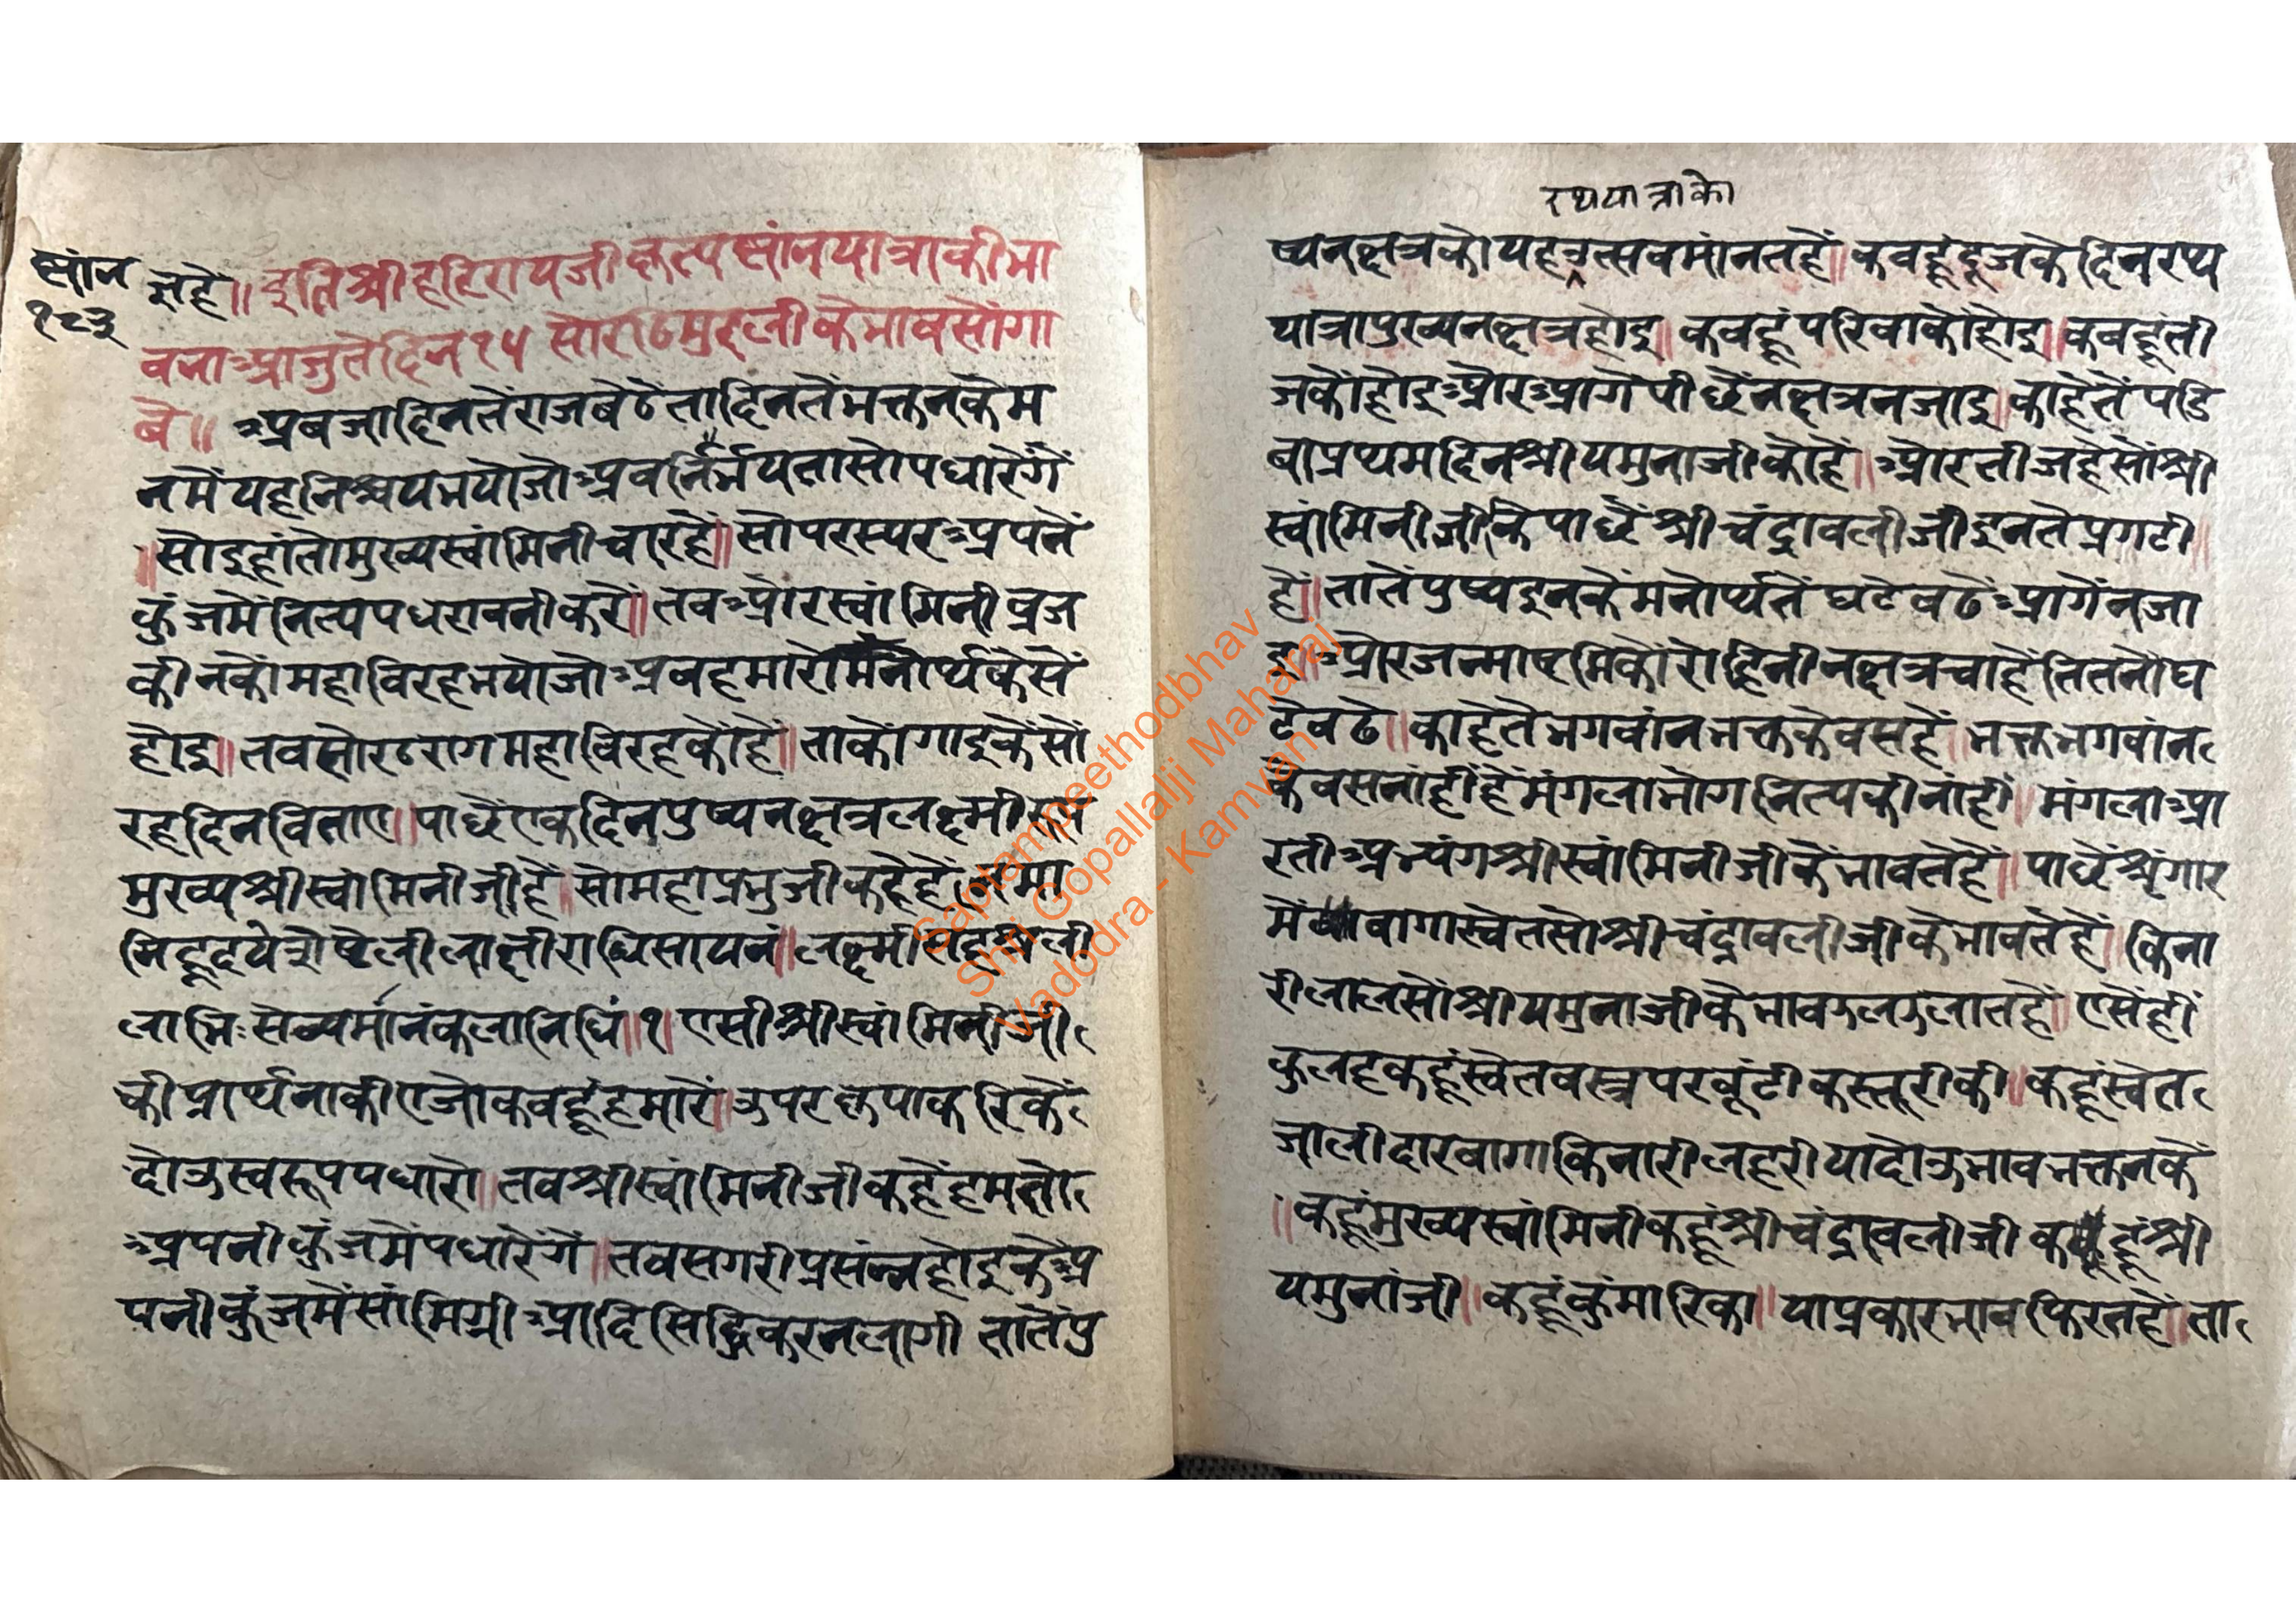 स्नांन
१८३
जुहै॥ इतिश्रीहरिरायजीकृत्यस्नांनयात्राकीभा
वनाआजुतेदिन१५ सोरठमुरलीकेभावसोंगा
वे॥ अबजादिनतेंराजबेठेतादिनतेंभक्तनकेम
नमेंयहनिश्चयभयोजोअबनिर्भयतासोपधारेंगें
॥सोइहांतोमुख्यस्वांमिनीचारहैं॥सोपरस्परअपने
कुंजमेंनित्यपधरावनीकरें॥तबऔरस्वांमिनीव्रज
कीनकोंमहाविरहभयोजोअबहमारोमनोर्थकेसें
होइ॥तबसोरठरागमहाविरहकोहैं॥ताकोंगाइकेंसों
रहदिनबिताए॥पाछेंएकदिनपुष्यनक्षत्रलक्ष्मी
मुख्यश्रीस्वांमिनीजीहैं॥सोमहाप्रभुजीकहेहैं
मिहृदयेशेषेलीलाक्षीराब्धिसायनं॥लक्ष्मीसहस्रली
लाभिःसेव्यमांनंकलानिधिं॥१॥एसीश्रीस्वांमिनीजी
कीप्रार्थनाकीएजोकबहूंहमारें॥उपरकृपाकरिकें
दोउस्वरूपपधारो॥तबश्रीस्वांमिनीजीकहेंहमतो
अपनीकुंजमेंपधारेंगें॥तबसगरीप्रसंन्नहोइकेंअ
पनीकुंजमेंसांमिग्रीआदिसिद्धिकरनलागी तातेंपु
रथयात्राको
ष्यनक्षत्रकोयहउत्सवमांनतहैं॥कबहूंदूजकेदिनरथ
यात्रापुख्यनक्षत्रहोइ॥कबहूंपरिवाकोंहोइ॥कबहूंती
जकोंहोइऔरआगेपीछेंनक्षत्रनजाइ॥काहेतेंपडि
बाप्रथमदिनश्रीयमुनाजीकोहें॥औरतीजहेसोंश्री
स्वांमिनीजीकेपाछेंश्रीचंद्रावलीजीइनतेप्रगटी॥
हें॥तातेंपुष्यइनकेंमनोर्थतेंघटेबढेंआगेंनजा
इ॥औरजन्माष्टमिकोंरोहिनीनक्षत्रचाहेंतितनोंघ
टेबढे॥काहेतेभगवांनभक्तकेबसहें॥भक्तभगवांन
केबसनांहींहेंमंगलाभोगनित्यकीनांहीं॥मंगलाआ
रतीअभ्यंगश्रीस्वांमिनीजीकेंभावतेहें॥पाछेंश्रृंगार
मेंबागास्वेतसोश्रीचंद्रावलीजीकेभावतेहें॥किना
रीलालसोंश्रीयमुनाजीकेभावउलउलातहें॥एसेंहीं
कुलहकहूंस्वेतवस्त्रपरबूंटीकस्तूरीकी॥कहूंस्वेत
जालीदारबागाकिनारीलहरीयादोउभावभक्तनकें
॥कहूंमुख्यस्वांमिनीकहूंश्रीचंद्रावलीजी कहूंश्री
यमुनांजी॥कहूंकुंमारिका॥याप्रकारभावफिरतहें॥ता